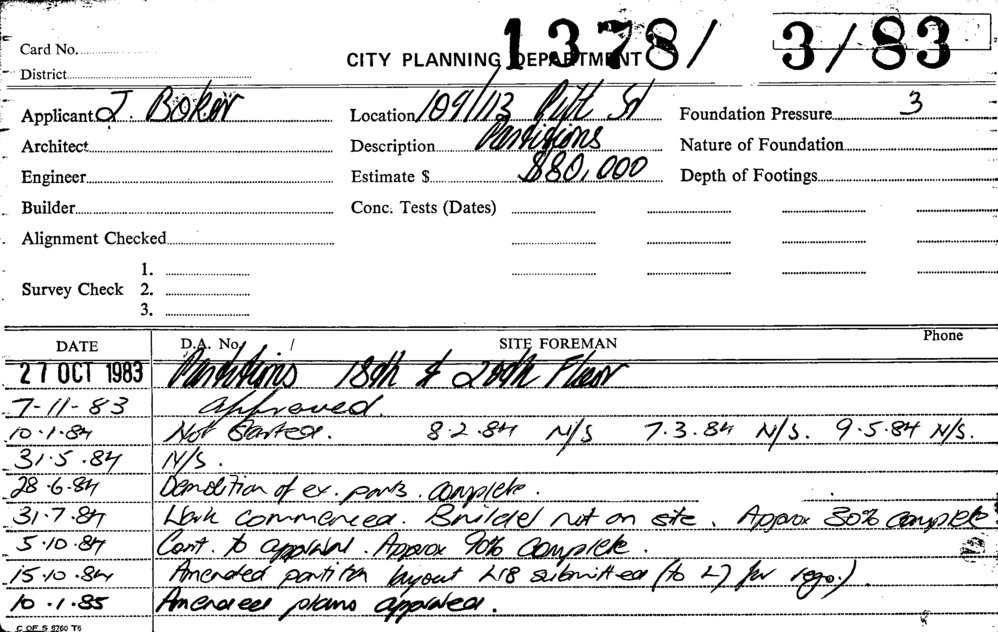 1378/ 3/83
Card No.
CITY PLANNING DEPARTMENT
District
Applicant J. Baker Location 109/113 Pitt St Foundation Pressure 3
Architect Description Partitions Nature of Foundation
Engineer Estimate $ $80,000 Depth of Footings
Builder Conc. Tests (Dates)
Alignment Checked
1.
Survey Check 2.
3.
DATE D.A. No. / SITE FOREMAN Phone
27 OCT 1983 Partitions 18th & 20th Floor
7-11-83 approved.
10.1.84 Not Started. 8.2.84 N/S 7.3.84 N/S. 9.5.84 N/S.
31.5.84 N/S.
28.6.84 Demolition of ex. parts. complete.
31.7.84 Work commenced. Builder not on site. Approx 30% complete.
5.10.84 Cont. to approval. Approx 90% complete.
15.10.84 Amended partition layout L18 submitted (to L) for
10.1.85 Amended plans approved.
C OF S 9760 T6